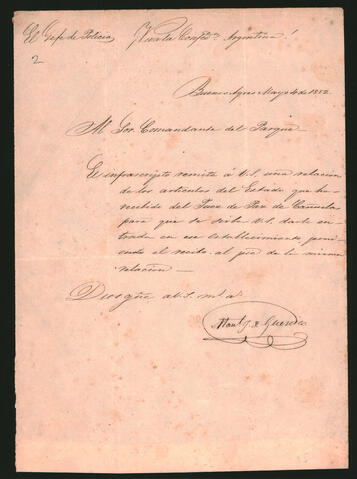 El Gefe de Policia
¡Viva la Confed.n Argentina!
2
Buenos Ayres Mayo 4 de 1852
Al Sor. Comandante del Parque
El infrascripto remite á V.S. una relacion
de los articulos del Estado que ha
recibido del Juez de Paz de Cañuelas
para que se sirva V.S. darle en-
trada en ese establecimiento, poni-
endo el recibo al pie de la misma
relacion —
Dios gûe á V.S. m.s a.s
Man.l J. de Guerrico